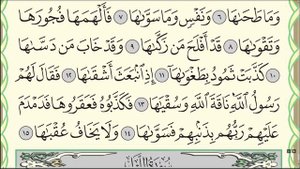 وَمَا طَحَىٰهَا ٦ وَنَفْسٍ وَمَا سَوَّىٰهَا ٧ فَأَلْهَمَهَا فُجُورَهَا
وَتَقْوَىٰهَا ٨ قَدْ أَفْلَحَ مَن زَكَّىٰهَا ٩ وَقَدْ خَابَ مَن دَسَّىٰهَا
١٠ كَذَّبَتْ ثَمُودُ بِطَغْوَىٰهَا ١١ إِذِ ٱنۢبَعَثَ أَشْقَىٰهَا ١٢ فَقَالَ لَهُمْ
رَسُولُ ٱللَّهِ نَاقَةَ ٱللَّهِ وَسُقْيَٰهَا ١٣ فَكَذَّبُوهُ فَعَقَرُوهَا فَدَمْدَمَ
عَلَيْهِمْ رَبُّهُم بِذَنۢبِهِمْ فَسَوَّىٰهَا ١٤ وَلَا يَخَافُ عُقْبَٰهَا ١٥